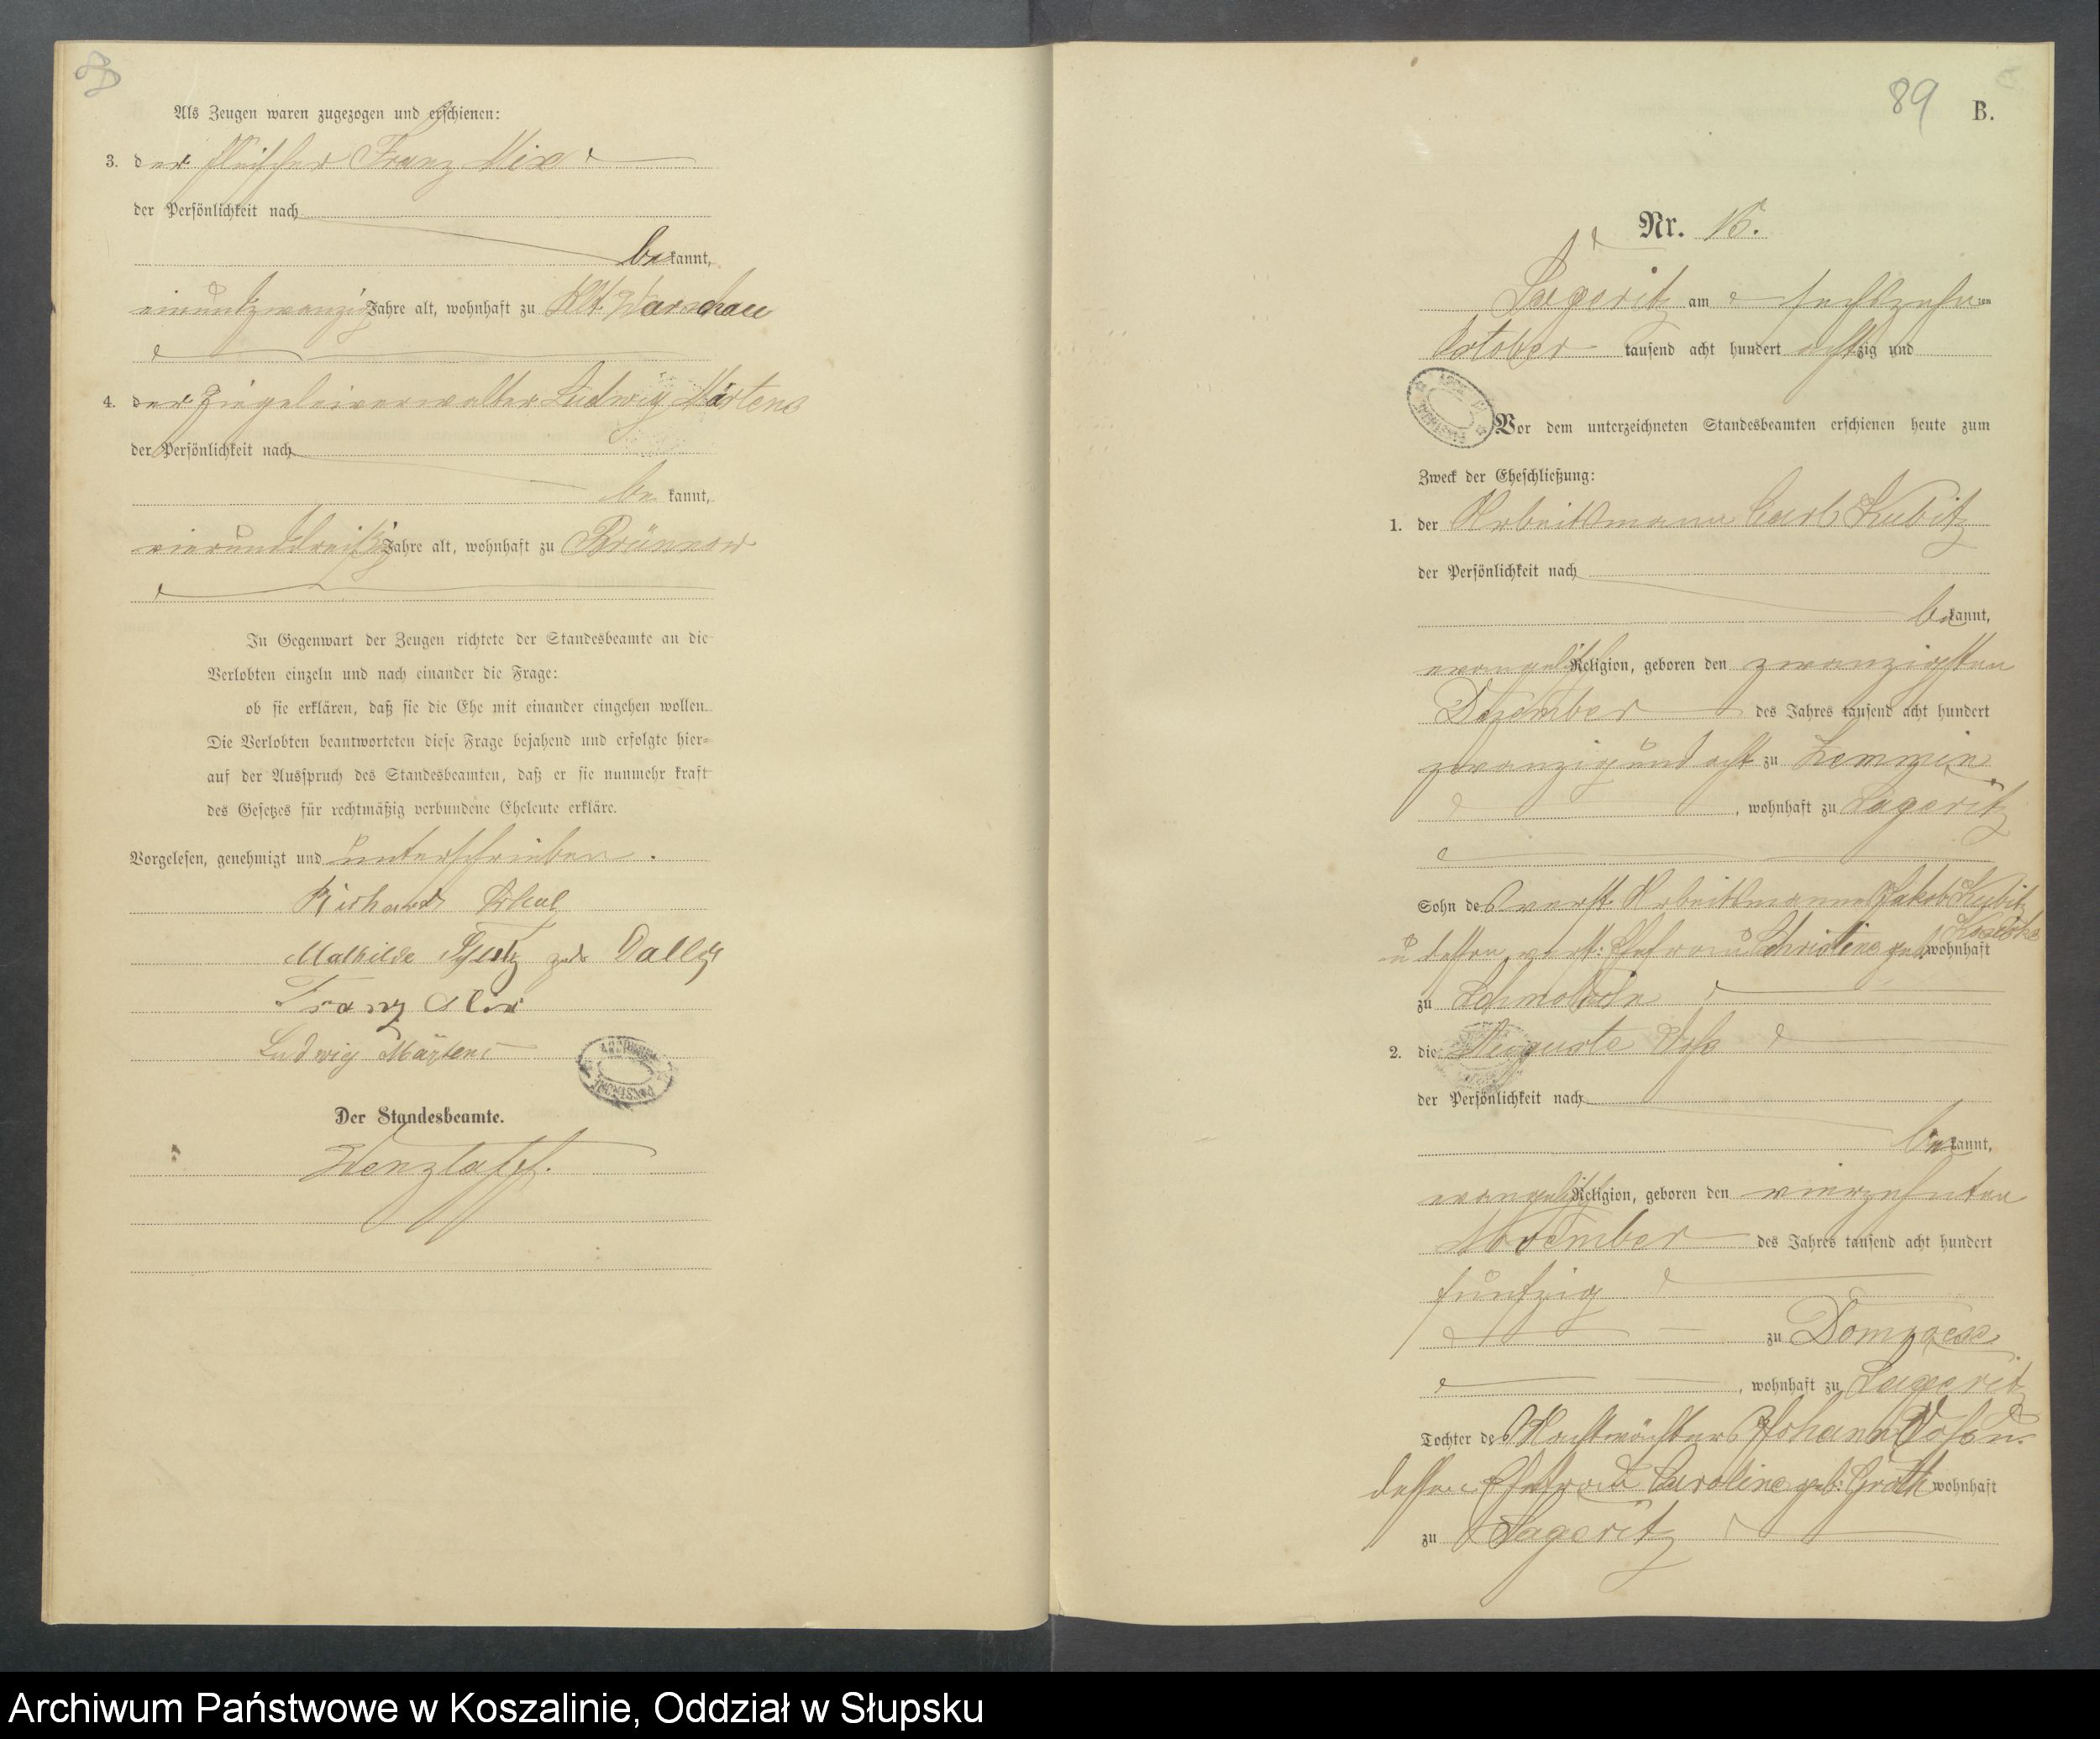 Als Zeugen waren zugezogen und erschienen:
3. der Fleischer Franz Mix
der Persönlichkeit nach
be kannt,
einundzwanzig Jahre alt, wohnhaft zu Alt Warschau
4. der Ziegeleiverwalter Ludwig Märtens
der Persönlichkeit nach
be kannt,
vierunddreißig Jahre alt, wohnhaft zu Brünnow
In Gegenwart der Zeugen richtete der Standesbeamte an die
Verlobten einzeln und nach einander die Frage:
ob sie erklären, daß sie die Ehe mit einander eingehen wollen.
Die Verlobten beantworteten diese Frage bejahend und erfolgte hier=
auf der Ausspruch des Standesbeamten, daß er sie nunmehr kraft
des Gesetzes für rechtmäßig verbundene Eheleute erkläre.
Vorgelesen, genehmigt und unterschrieben.
Richard
Mathilde geb Dally
Franz Mix
Ludwig Märtens
Der Standesbeamte.
Wenzlaff.
89 B.
Nr.
Sageritz am achtzehn ten
October tausend acht hundert achtzig und
Vor dem unterzeichneten Standesbeamten erschienen heute zum
Zweck der Eheschließung:
1. der Arbeitsmann Carl Kubitz
der Persönlichkeit nach
be kannt,
evangelisch Religion, geboren den zwanzigsten
Dezember des Jahres tausend acht hundert
zwanzig und acht zu
, wohnhaft zu Sageritz
Sohn des verst. Arbeitsmanns Jakob Kubitz
u dessen verst: Ehefrau Christine geb. wohnhaft
zu Schmolsin
2. die Auguste Voß
der Persönlichkeit nach
be kannt,
evangelisch Religion, geboren den vierzehnten
November des Jahres tausend acht hundert
fünfzig
zu
, wohnhaft zu Sageritz
Tochter des Nachtwächters Johann Voß u.
dessen Ehefrau Caroline geb: Groth wohnhaft
zu Sageritz
Archiwum Państwowe w Koszalinie, Oddział w Słupsku